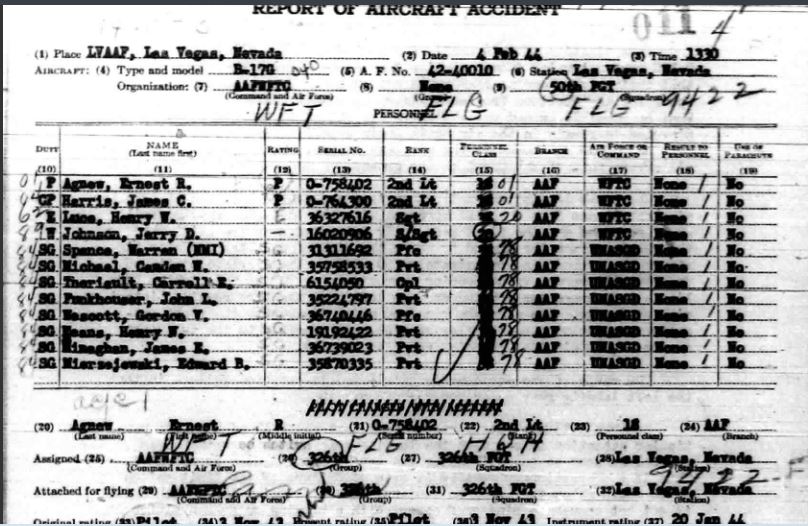 REPORT OF AIRCRAFT ACCIDENT
(1) Place LVAAF, Las Vegas, Nevada (2) Date 4 Feb 44 (3) Time 1330
AIRCRAFT: (4) Type and model B-17G (5) A. F. No. 42-40010 (6) Station Las Vegas, Nevada
Organization: (7) AAFWFTC (8) None (9) 50th FGT
(Command and Air Force) (Group) (Squadron)
WFT FLG FLG 9422
PERSONNEL
DUTY NAME (Last name first) RATING SERIAL NO. RANK PERSONNEL CLASS BRANCH AIR FORCE OR COMMAND RESULT TO PERSONNEL USE OF PARACHUTE
(10) (11) (12) (13) (14) (15) (16) (17) (18) (19)
P Agnew, Ernest R. P O-758402 2nd Lt 01 AAF WFTC None 1 No
CP Harris, James C. P O-764300 2nd Lt 01 AAF WFTC None 1 No
E Henry W. 36327616 Sgt 20 AAF WFTC None 1 No
W Johnson, Jerry D. — 16020906 S/Sgt AAF WFTC None No
SG Spence, Warren (NMI) 31311692 Pfc 78 AAF UNASGD None 1 No
SG Michael, Camden W. 35758533 Pvt 78 AAF UNASGD None No
SG Theriault, Carroll E. 6154050 Cpl 78 AAF UNASGD None 1 No
SG Funkhouser, John L. 35224797 Pvt 78 AAF UNASGD None 1 No
SG Wescott, Gordon V. 36740446 Pfc 78 AAF UNASGD None 1 No
SG Means, Henry N. 19192422 Pvt 78 AAF UNASGD None 1 No
SG James E. 36739023 Pvt 78 AAF UNASGD None 1 No
SG Mierzejewski, Edward B. 35870335 Pvt 78 AAF UNASGD None 1 No
(20) Agnew Ernest R (21) O-758402 (22) 2nd Lt (23) 18 (24) AAF
(Last name) (First name) (Middle initial) (Serial number) (Rank) (Personnel class) (Branch)
WFT FLG HGH
Assigned (25) AAFWFTC (26) 326th (27) 326th FGT (28) Las Vegas, Nevada
(Command and Air Force) (Group) (Squadron) (Station)
9422
Attached for flying (29) AAFWFTC (30) 326th (31) 326th FGT (32) Las Vegas, Nevada
(Command and Air Force) (Group) (Squadron) (Station)
Original rating (33) Pilot (34) 3 Nov 43 Present rating (35) Pilot (36) 3 Nov 43 Instrument rating (37) 20 Jan 44